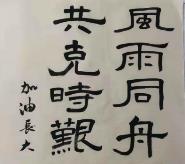 風雨同舟
共克時艱
加油長大